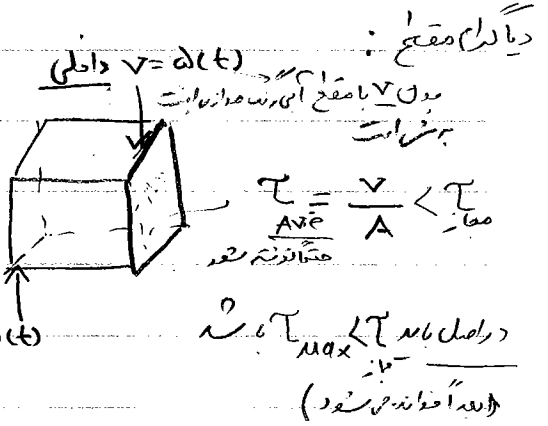 دیاگرام مقطع :
داخلی V = ω(t)
چون V با مقطع آبی رنگ موازی است
برشی است
τ AVE = V/A < τ مجاز
حتماً نوشته شود
(t)
در اصل باید τ MAX < τ مجاز باشد
(بعداً خوانده می شود)